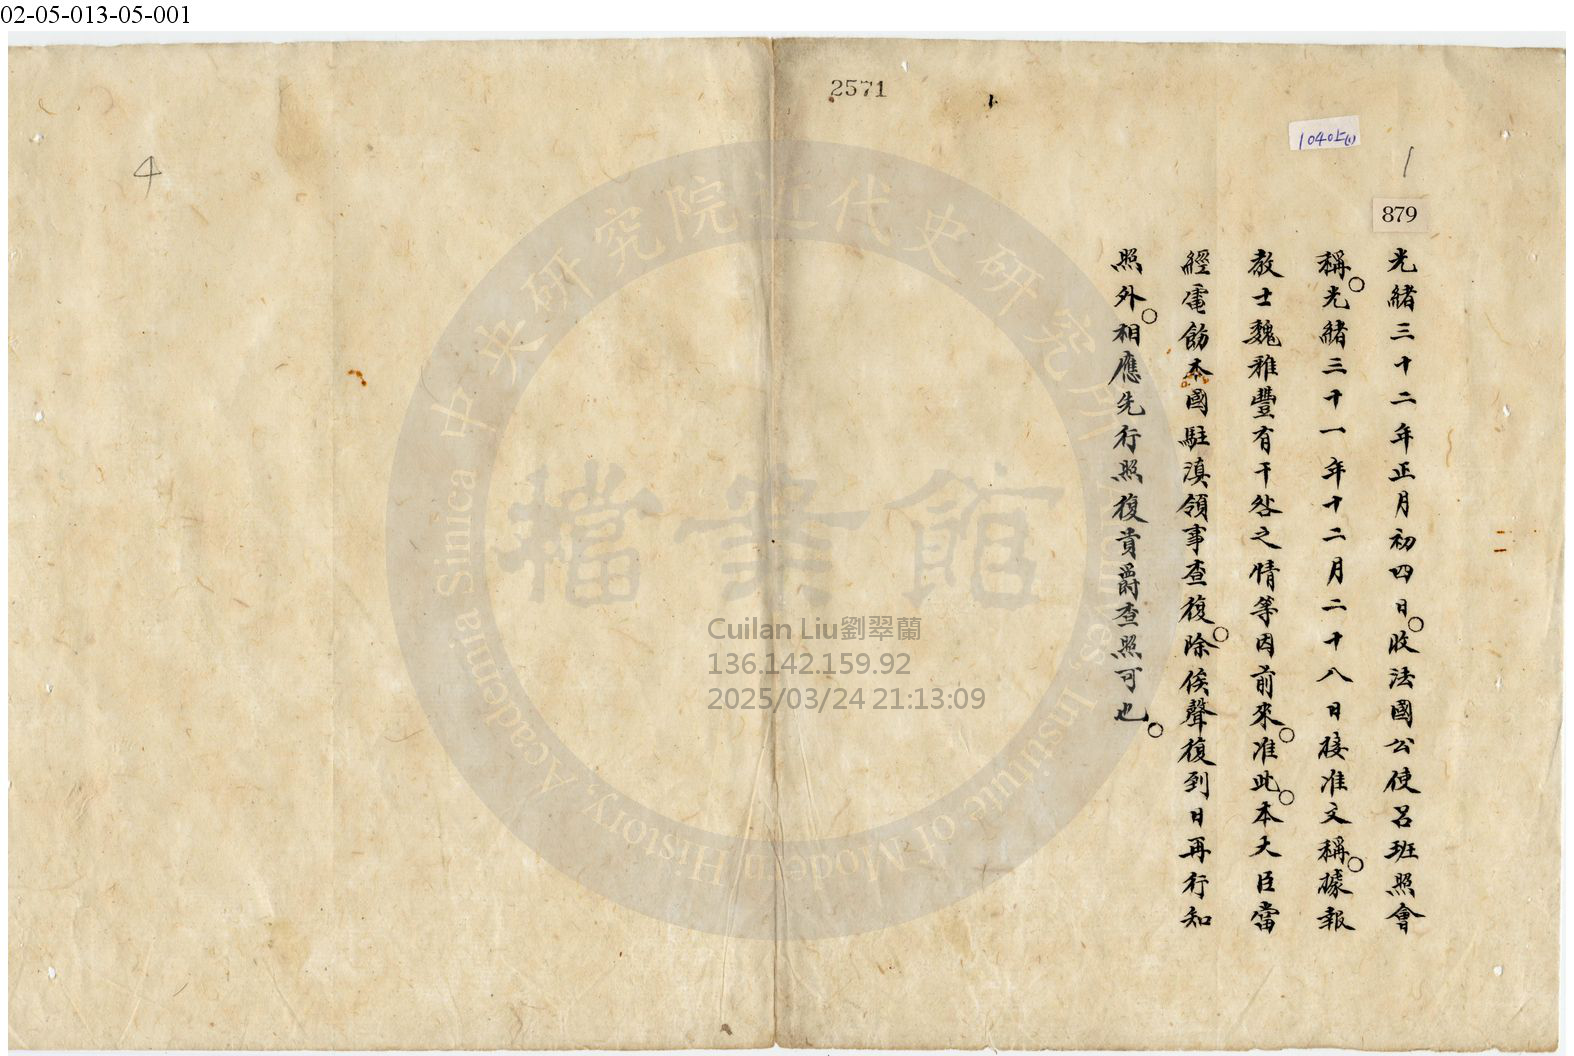 02-05-013-05-001
2571
10405(1)
1
879
4
光緒三十二年正月初四日○收法國公使呂班照會
稱○光緒三十一年十二月二十八日接准文稱○據報
教士魏雅豐有干咎之情等因前來○准此○本大臣當
經電飭本國駐滇領事查復○除俟聲復到日再行知
照外○相應先行照復貴爵查照可也○
中央研究院近代史研究所
檔案館
Academia Sinica
Archives, Institute of Modern History, Academia Sinica
Cuilan Liu劉翠蘭
136.142.159.92
2025/03/24 21:13:09